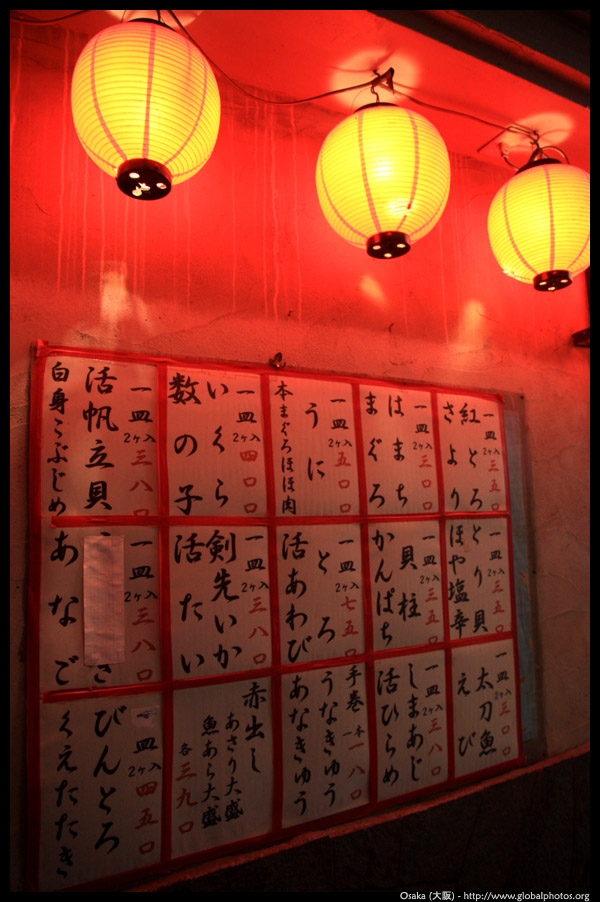 一皿2ヶ入三五〇
紅とろ
さより
一皿2ヶ入三〇〇
はまち
まぐろ
一皿2ヶ入五〇〇
うに
本まぐろほほ肉
一皿2ヶ入四〇〇
いくら
数の子
一皿2ヶ入三八〇
活帆立貝
白身こぶじめ
一皿2ヶ入三五〇
とり貝
ほや塩辛
一皿2ヶ入三五〇
貝柱
かんぱち
一皿2ヶ入七五〇
とろ
活あわび
一皿2ヶ入三八〇
剣先いか
活たい
一皿2ヶ入三八〇
あなご
一皿2ヶ入三〇〇
太刀魚
えび
一皿2ヶ入三八〇
しまあじ
活ひらめ
手巻一本一八〇
うなきゅう
あなきゅう
赤出し
あさり大盛
魚あら大盛
各三九〇
一皿2ヶ入四五〇
びんとろ
くえたたき
Osaka (大阪) - http://www.globalphotos.org